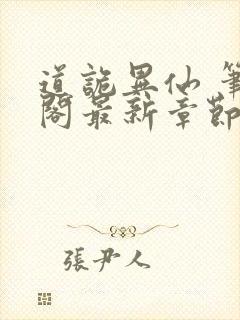 道詭異仙 筆
閣最新章節
張尹人